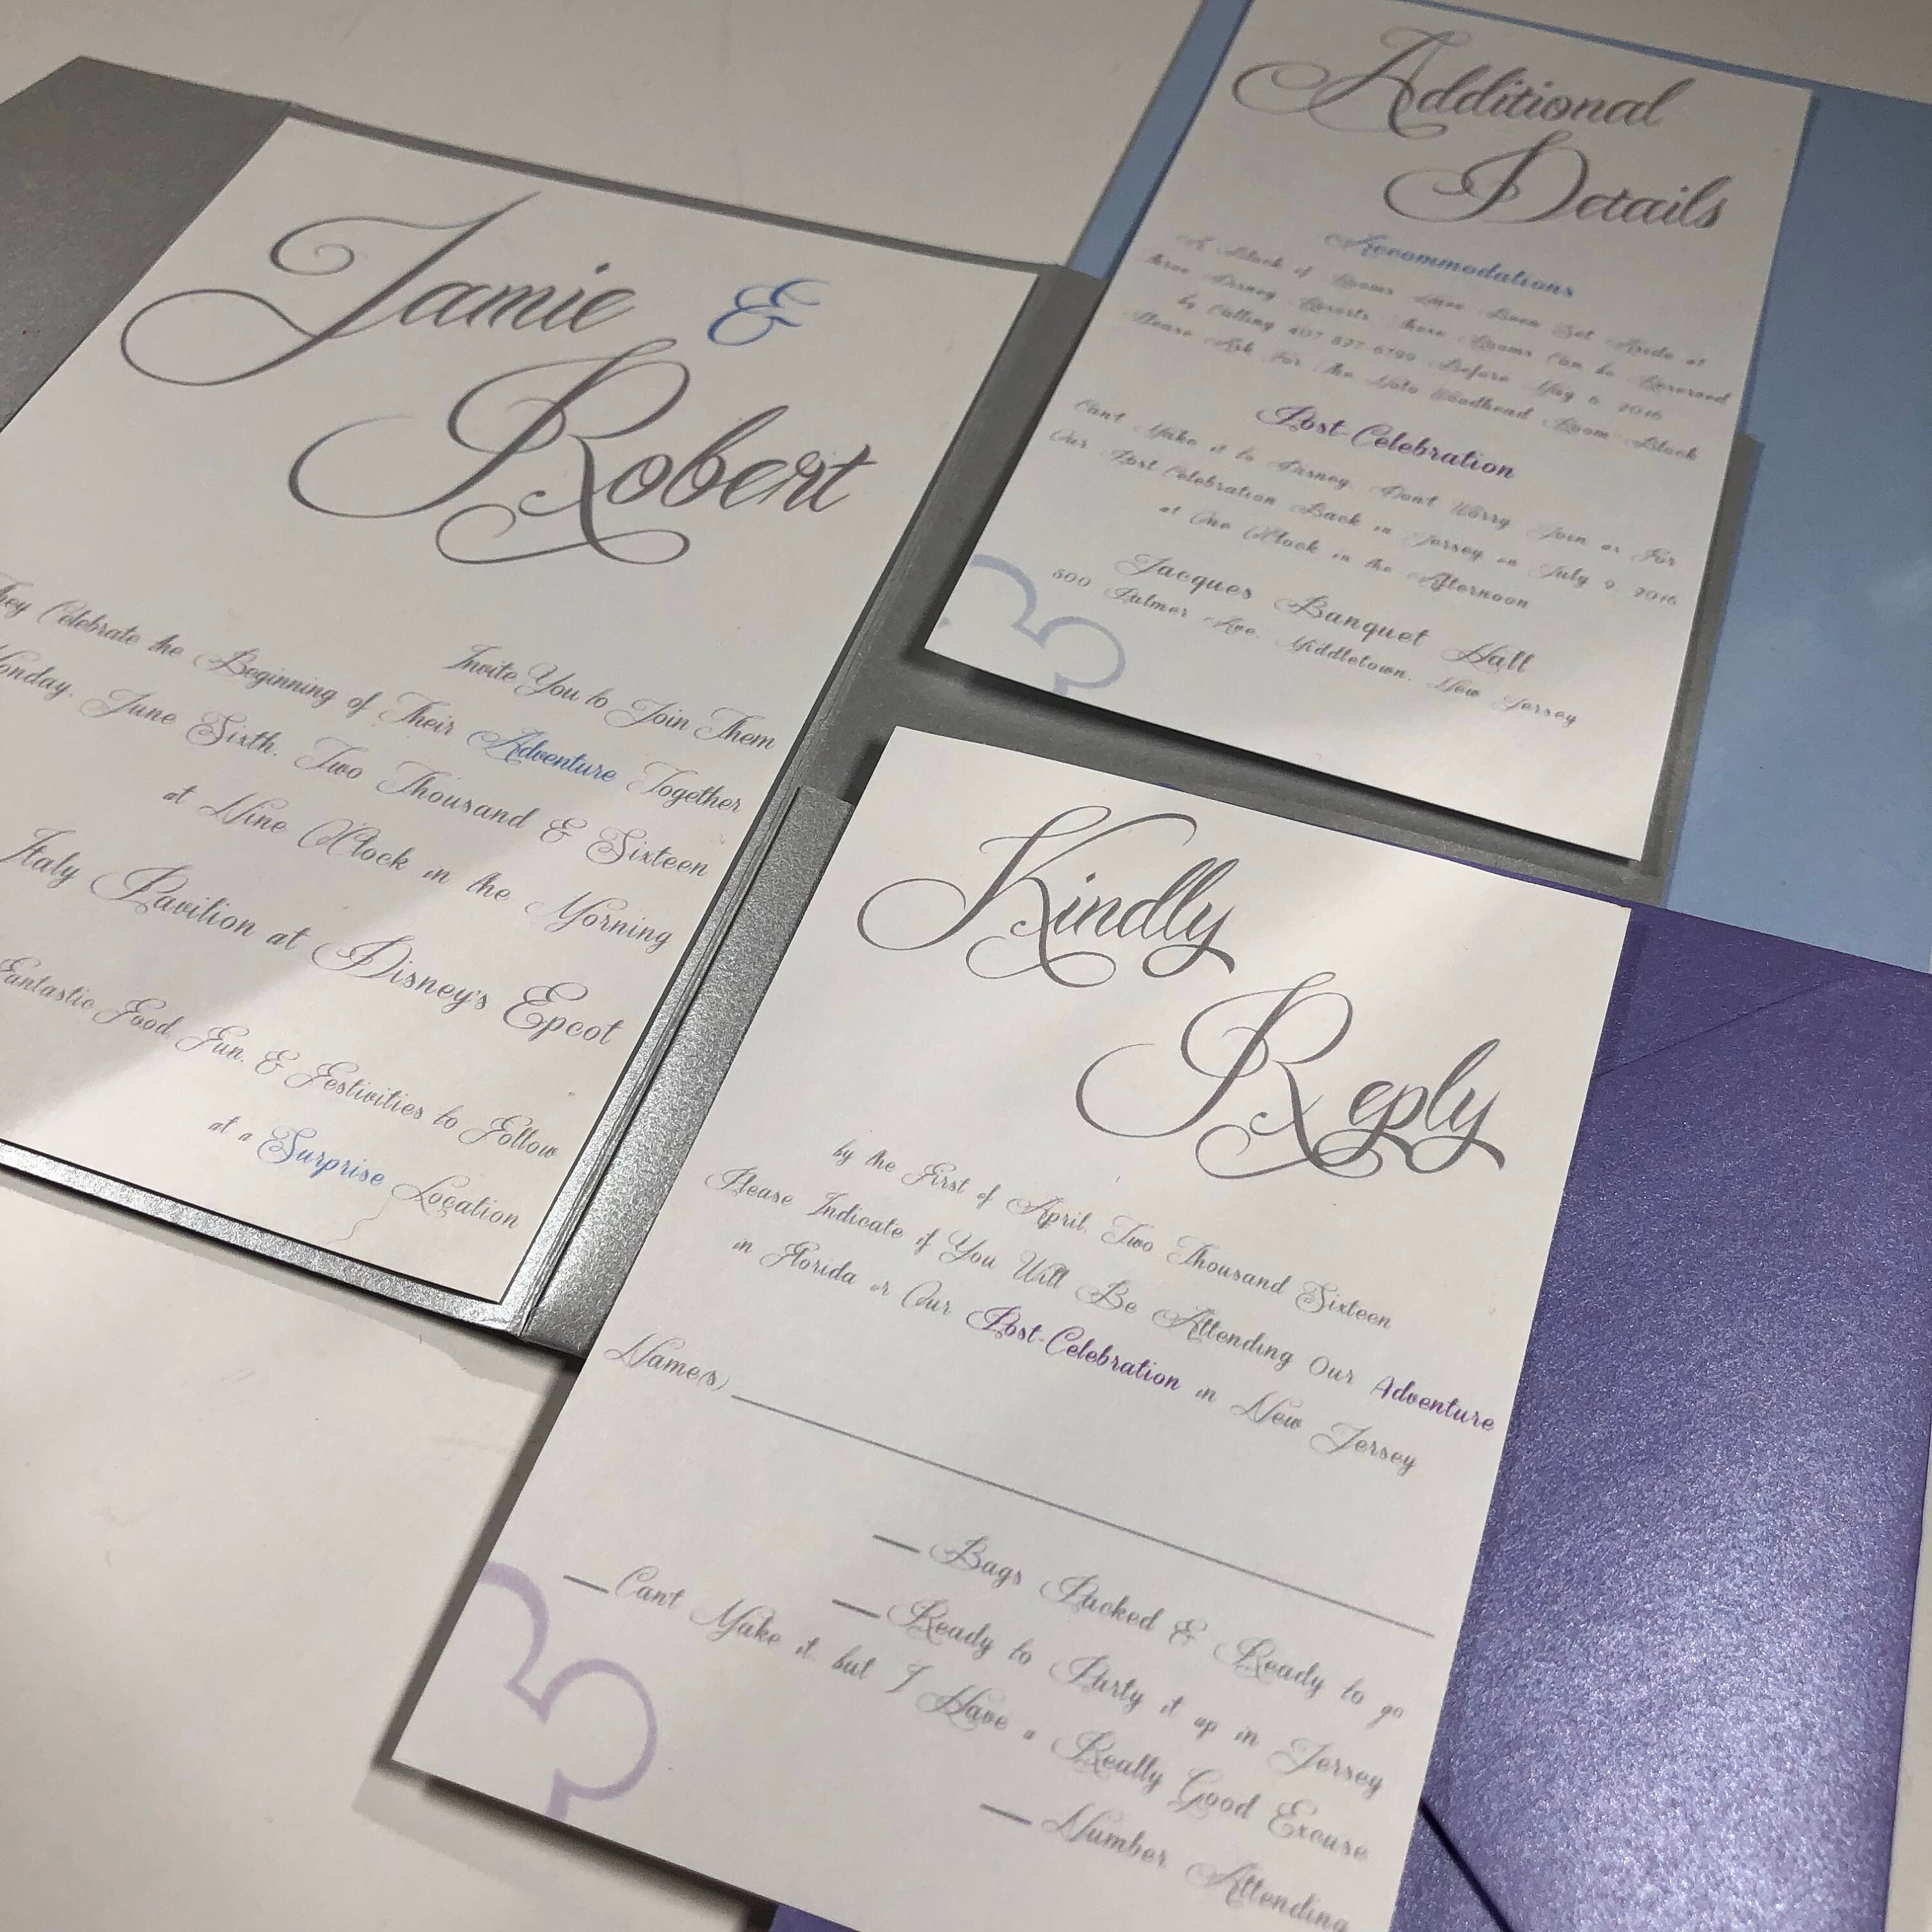 Jamie &
Robert
Invite You to Join Them
They Celebrate the Beginning of Their Adventure Together
Monday, June Sixth, Two Thousand & Sixteen
at Nine O'Clock in the Morning
Italy Pavilion at Disney's Epcot
Fantastic Food, Fun, & Festivities to Follow
at a Surprise Location
Additional
Details
Accommodations
A Block of Rooms Have Been Set Aside at
three Disney Resorts These Rooms Can be Reserved
by Calling 407 827 Before May 6 2016
Please Ask For the Woodhead Room Block
Post-Celebration
Can't Make it to Disney, Don't Worry Join us For
Our Post Celebration Back in Jersey on July 9 2016
at One O'Clock in the Afternoon
Jacques Banquet Hall
500 Palmer Ave. Middletown, New Jersey
Kindly
Reply
by the First of April, Two Thousand Sixteen
Please Indicate if You Will Be Attending Our Adventure
in Florida or Our Post-Celebration in New Jersey
Name(s)
Bags Packed & Ready to go
Ready to Party it up in Jersey
Can't Make it but I Have a Really Good Excuse
Number Attending